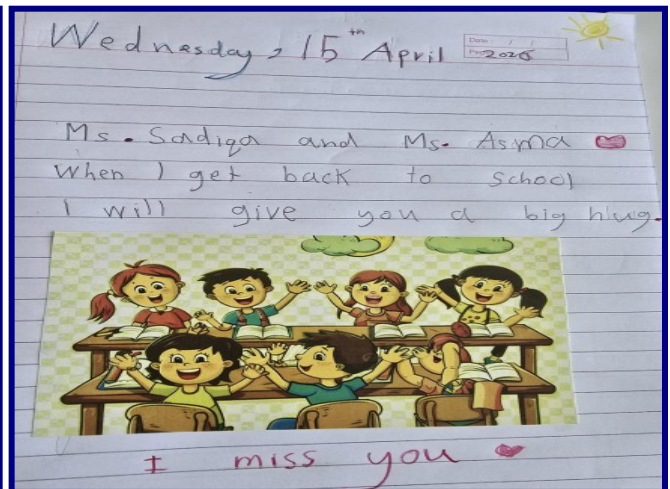 Wednesday, 15th April
Date: / /
2026
Ms. Sadiqa and Ms. Asma
When I get back to School
I will give you a big hug.
I miss you